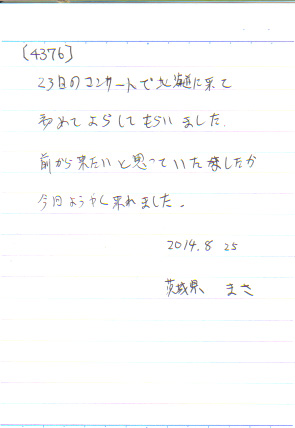 [4376]
23日のコンサートで北海道に来て
初めてよらしてもらいました。
前から来たいと思っていたましたが
今日ようやく来れました。
2014.8 25
茨城県 まさ